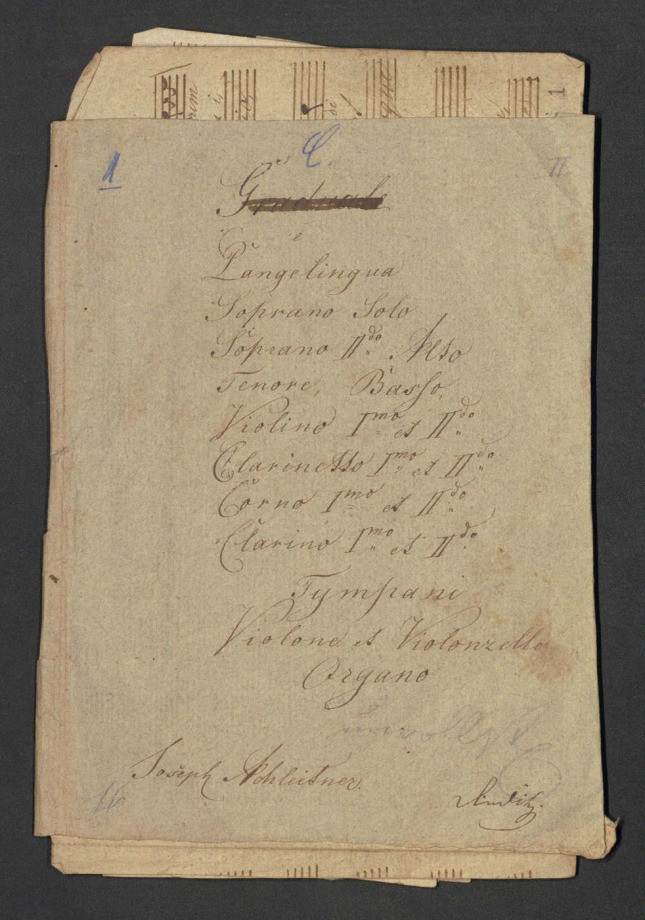 1
C.
II
Graduale
Pange lingua
Soprano Solo
Soprano IIdo Alto
Tenore, Basso,
Violino Imo et IIdo
Clarinetto Imo et IIdo
Corno Imo et IIdo
Clarino Imo et IIdo
Tympani
Violone et Violonzello
Organo
Joseph Achleitner